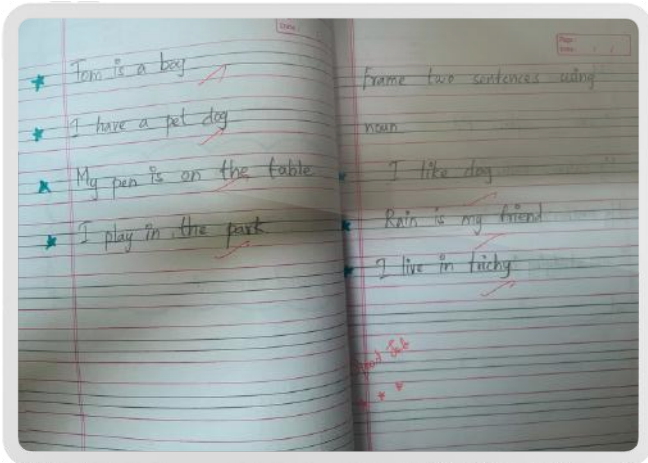 Tom is a boy
I have a pet dog
My pen is on the table
I play in the park
Frame two sentences using
noun
I like dog
Rain is my friend
I live in trichy
Good Job